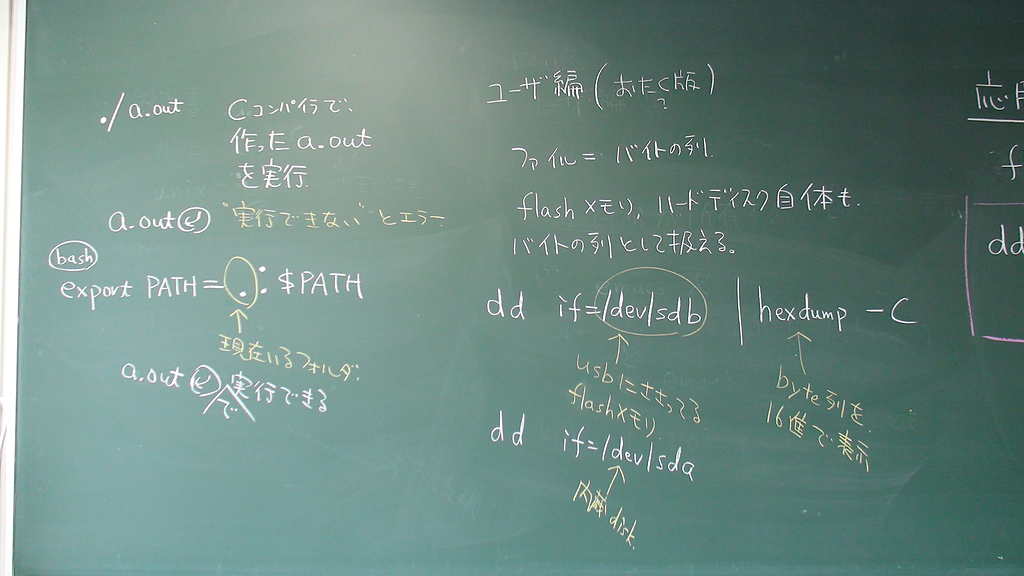 ./a.out
Cコンパイラで、
作ったa.out
を実行
a.out⏎ "実行できない"とエラー.
bash
export PATH=.:$PATH
↑
現在いるフォルダ.
a.out⏎で実行できる
ユーザ編(おたく版)
?
ファイル=バイトの列.
flashメモリ,ハードディスク自体も.
バイトの列として扱える。
dd if=/dev/sdb | hexdump -C
↑
usbにささってる
flashメモリ
↑
byte列を
16進で表示
dd if=/dev/sda
↑
内蔵disk.
応用
f
dd